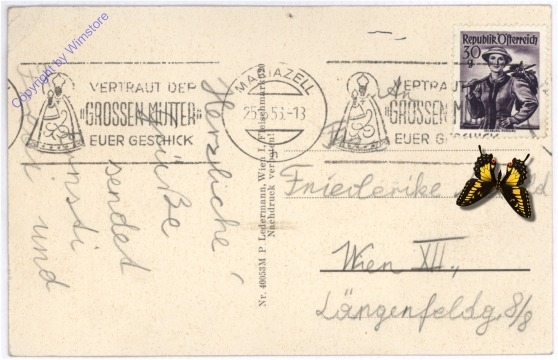 Copyright by Wimstore
VERTRAUT DER
"GROSSEN MUTTER"
EUER GESCHICK
MARIAZELL
25. 53.-13
VERTRAUT DER
"GROSSEN MUTTER"
EUER GESCHICK
Republik Österreich
30
g
Herzliche
Grüße
sendet
und
Nr. 40053M P. Ledermann, Wien I, Fleischmarkt 20
Nachdruck verboten!
Friederike
Wien XII.,
Längenfeldg. 8/8